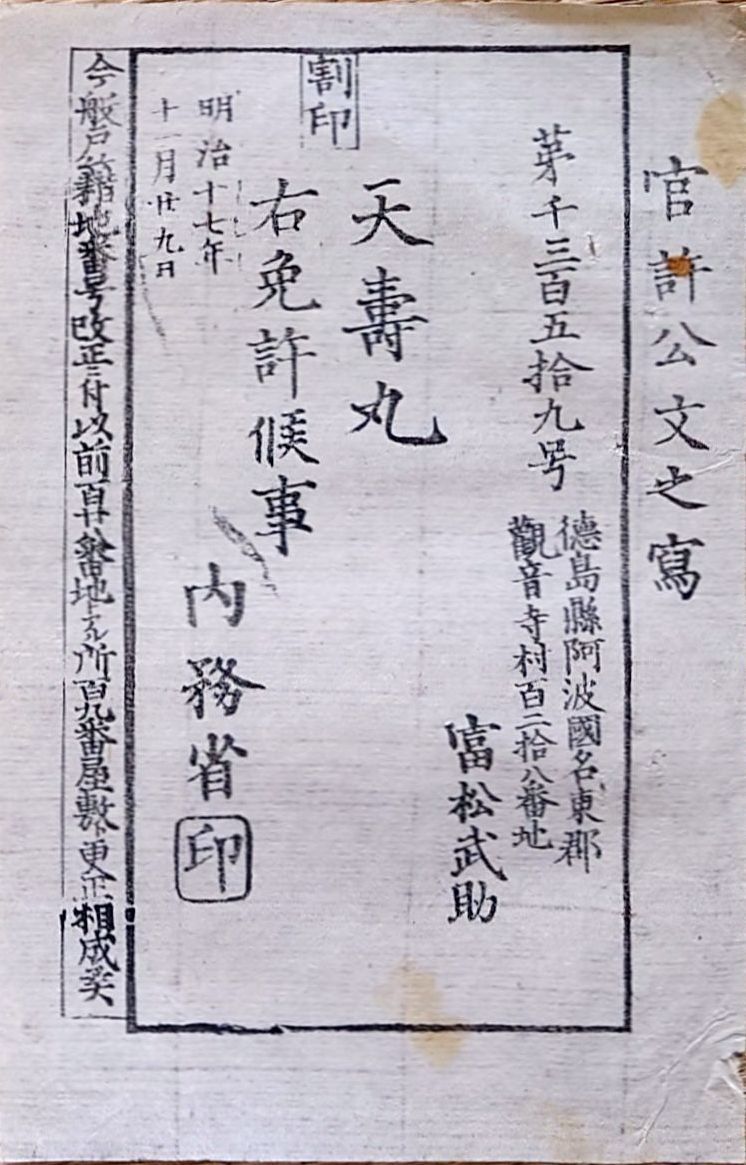 官許公文之寫
苐千三百五拾九号
德島縣阿波國名東郡
觀音寺村百二拾八番地
富松武助
天壽丸
右免許候事
割印
明治十七年
十一月廿九日
内務省印
今般戸籍地番号改正ニ付以前百廿八番地トアル所百九番屋敷ト更正相成矣